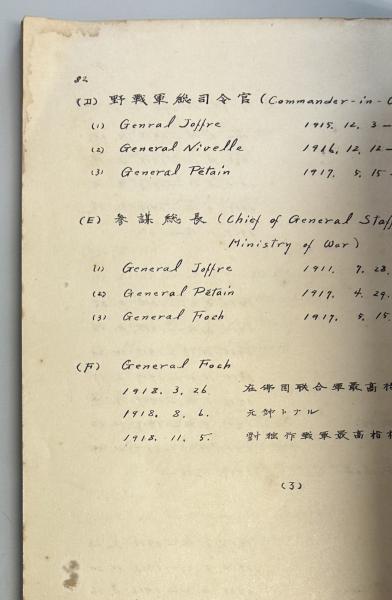 82
(D) 野戰軍総司令官 (Commander-in-C
(1) Genral Joffre 1915. 12. 3 —
(2) General Nivelle 1916. 12. 12 —
(3) General Pétain 1917. 5. 15 -
(E) 參謀総長 (Chief of General Staff
Ministry of War)
(1) General Joffre 1911. 7. 28.
(2) General Pétain 1917. 4. 29.
(3) General Foch 1917. 5. 15.
(F) General Foch
1918. 3. 26 在佛国联合軍最高指
1918. 8. 6. 元帥トナル
1918. 11. 5. 對独作戰軍最高指揮
(3)